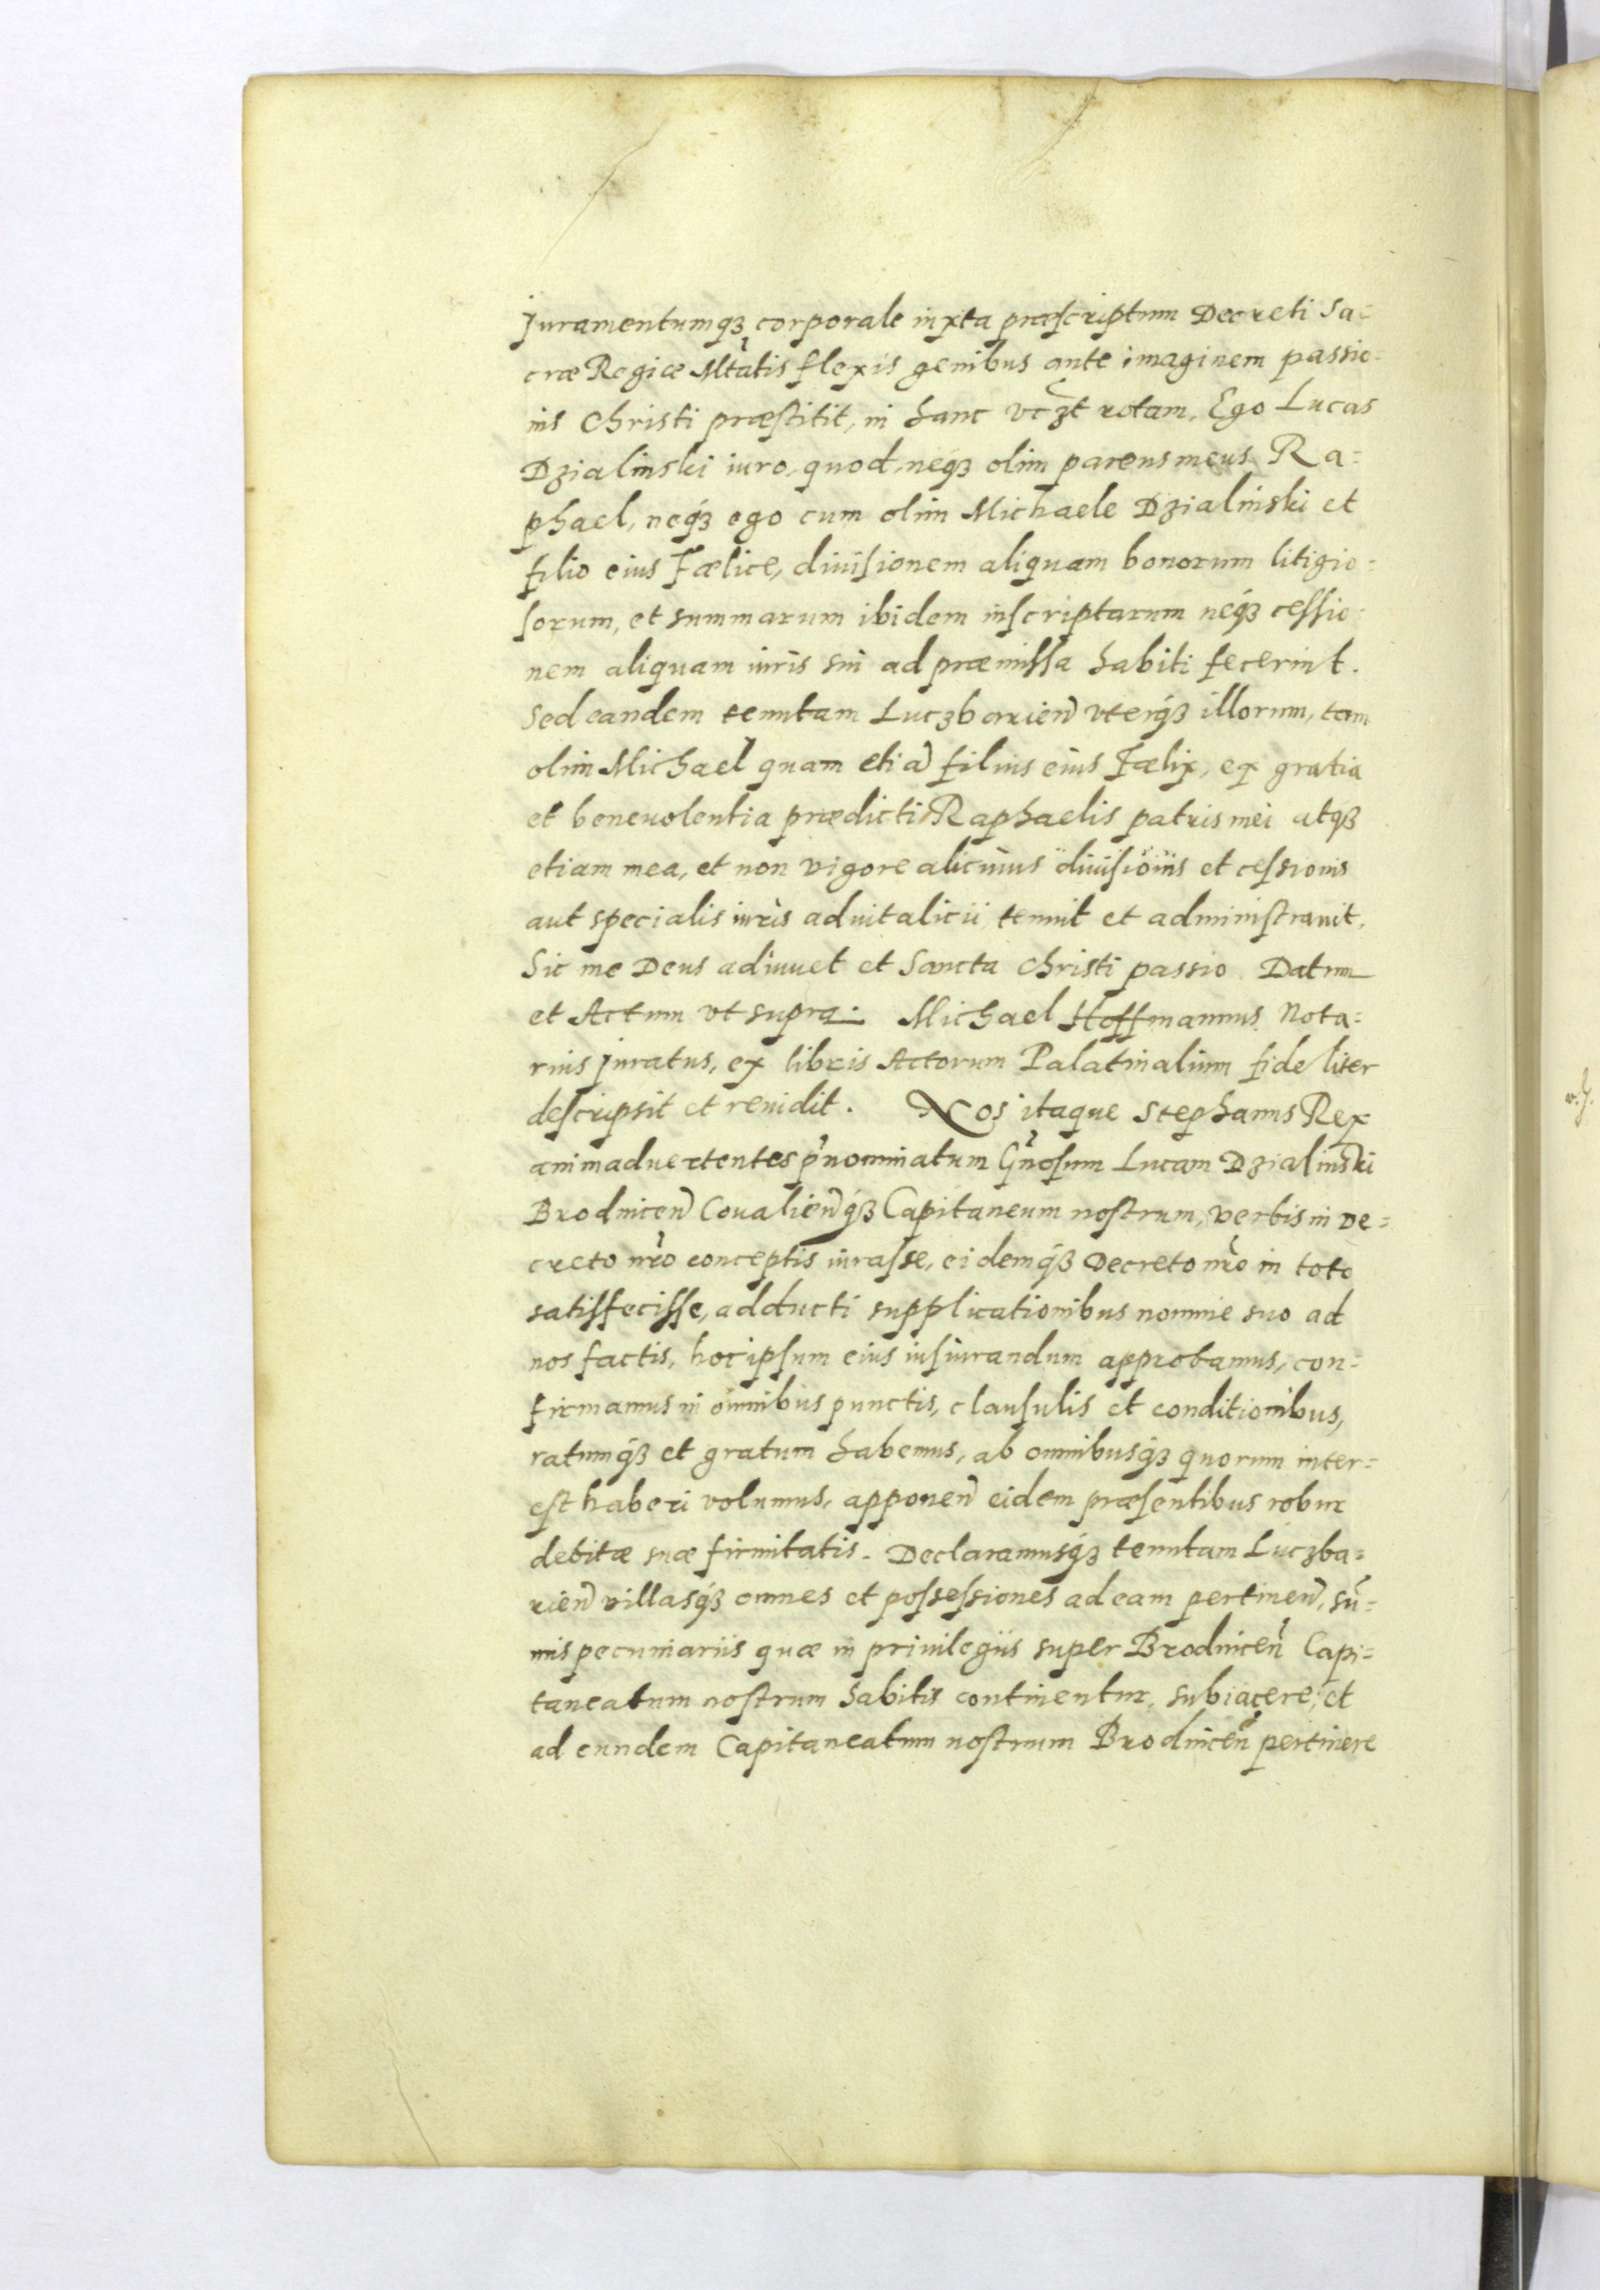 Juramentumqꝫ corporale iuxta præscriptum Decreti Sa=
cræ Regiæ Mtatis flexis genibus ante imaginem passio=
nis Christi præstitit, in hanc vczt rotam, Ego Lucas
Dzialinski iuro, quod neqꝫ olim parens meus Ra=
phael, neqꝫ ego cum olim Michaele Dzialinski et
filio eius Fælice, diuisionem aliquam bonorum litigio=
sorum, et summarum ibidem inscriptarum neqꝫ cessio=
nem aliquam iuris sui ad præmissa habiti fecerint.
Sed eandem tenutam Luczbarień vterqꝫ illorum, tam
olim Michael quam etiã filius eius Fælix, ex gratia
et beneuolentia prædicti Raphaelis patris mei atqꝫ
etiam mea, et non vigore alicuius diuisionis et cessionis
aut specialis iuris aduitalicii tenuit et administrauit.
Sic me Deus adiuuet et Sancta Christi passio. Datum
et Actum vt supra. Michael Hoffmannus Nota=
rius Juratus, ex libris Actorum Palatinalium fideliter
descripsit et reuidit. Nos itaque Stephanus Rex
animaduertentes p̃nominatum Gñosum Lucam Dzialinski
Brodniceñ Coualieñqꝫ Capitaneum nostrum, verbis in De=
creto nr̃o conceptis iurasse, eidemqꝫ Decreto nr̃o in toto
satisfecisse, adducti supplicationibus nomine suo ad
nos factis, hoc ipsum eius iusiurandum approbamus, con=
firmamus in omnibus punctis, clausulis et conditionibus,
ratumqꝫ et gratum habemus, ab omnibusqꝫ quorum inter=
est haberi volumus, apponeñ eidem præsentibus robur
debitæ suæ firmitatis. Declaramusqꝫ tenutam Luczba=
rieñ villasqꝫ omnes et possessiones ad eam pertineñ, sũ=
mis pecuniariis quæ in priuilegiis super Brodniceñ Capi=
taneatum nostrum habitis continentur, subiacere, et
ad eundem Capitaneatum nostrum Brodniceñ pertinere